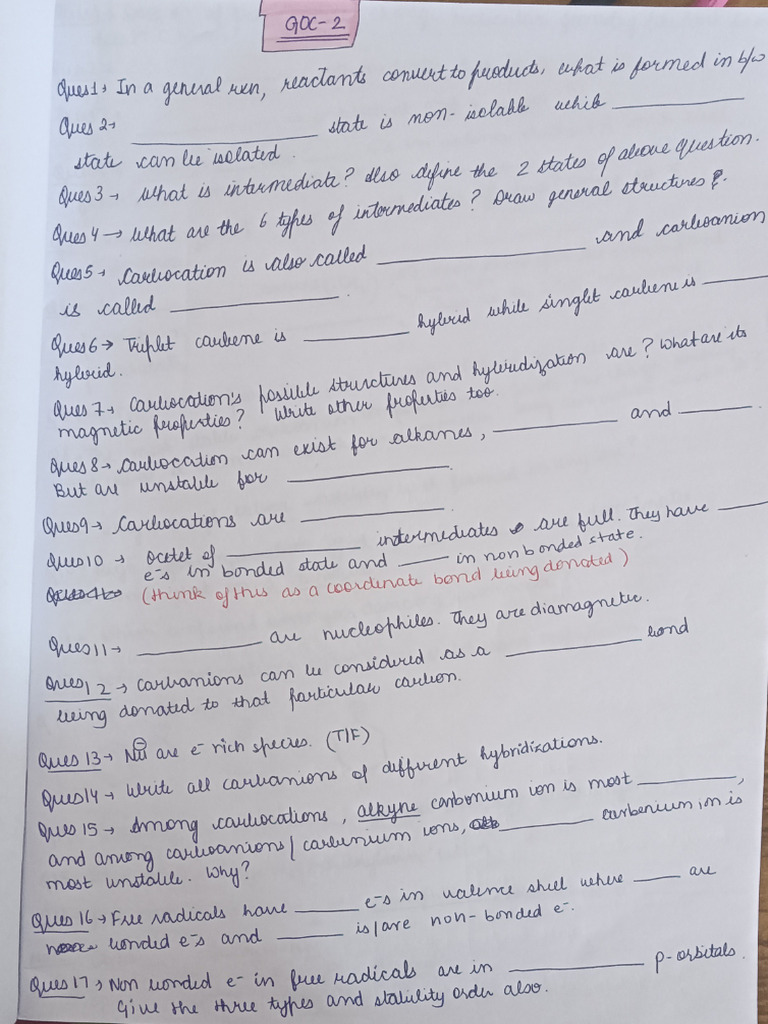 GOC-2
Ques 1→ In a general rxn, reactants convert to products, what is formed in b/w
Ques 2→ ____________ state is non-isolable while ____________
state can be isolated.
Ques 3→ What is intermediate? Also define the 2 states of above question.
Ques 4→ What are the 6 types of intermediates? Draw general structures?
Ques 5→ Carbocation is also called ____________ and carboanion
is called ____________.
Ques 6→ Triplet carbene is ________ hybrid while singlet carbene is ______
hybrid.
Ques 7→ Carbocation's possible structures and hybridization are? What are its
magnetic properties? Write other properties too.
Ques 8→ Carbocation can exist for alkanes, ________ and ______.
But are unstable for ____________.
Ques 9→ Carbocations are ____________.
Ques 10→ Octet of __________ intermediates are full. They have ____
e-s in bonded state and ____ in nonbonded state.
(think of this as a coordinate bond being donated)
Ques 11→ __________ are nucleophiles. They are diamagnetic.
Ques 12→ Carbanions can be considered as a __________ bond
being donated to that particular carbon.
Ques 13→ Nu⊖ are e- rich species. (T/F)
Ques 14→ Write all carbanions of different hybridizations.
Ques 15→ Among carbocations, alkyne carbonium ion is most ________,
and among carboanions/carbenium ions, ________ carbenium ion is
most unstable. Why?
Ques 16→ Free radicals have ______ e-s in valence shell where ____ are
bonded e-s and ______ is/are non-bonded e-.
Ques 17→ Non bonded e- in free radicals are in ____________ p-orbitals.
Give the three types and stability order also.